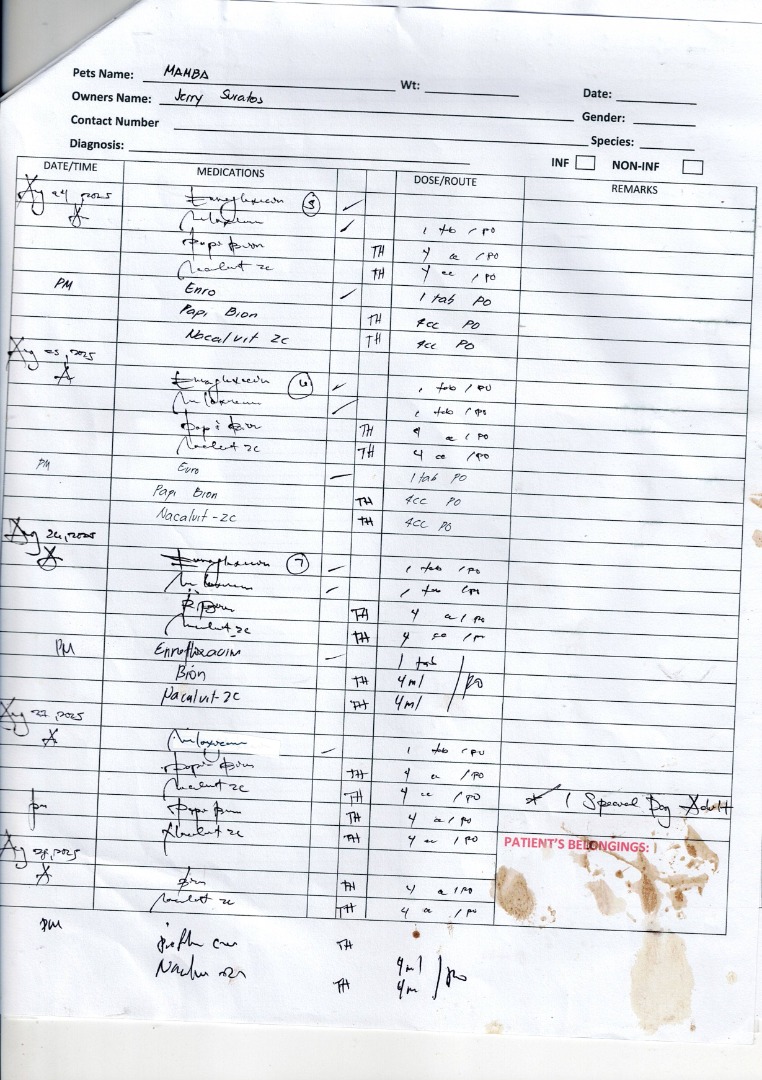 Pets Name: MAMBA Wt:
Date:
Owners Name: Jerry Suratos
Gender:
Contact Number
Species:
Diagnosis:
INF NON-INF
DATE/TIME MEDICATIONS DOSE/ROUTE REMARKS
Aug 24, 2025 5
1 tab / PO
Papi Bion TH 4 cc / PO
Nacalvit 2C TH 4 cc / PO
PM Enro 1 tab PO
Papi Bion TH 4cc PO
Nacalvit 2C TH 4cc PO
Aug 25, 2025
A 6 1 tab / PO
1 tab / PO
Papi Bion TH 4 cc / PO
Nacalvit 2C TH 4 cc / PO
PM Enro 1 tab PO
Papi Bion TH 4cc PO
Nacalvit-2C TH 4cc PO
Aug 26, 2025
A 7 1 tab / PO
1 tab / PO
TH 4 cc / PO
Nacalvit 2C TH 4 cc / PO
PM Enrofloxacin 1 tab
Bion TH 4ml / PO
Nacalvit-2C TH 4ml
Aug 27, 2025
A 1 tab / PO
Papi Bion TH 4 cc / PO
Nacalvit 2C TH 4 cc / PO
* 1 Special Dog Adult
pm Papi Bion TH 4 cc / PO
Nacalvit 2C TH 4 cc / PO
PATIENT'S BELONGINGS:
Aug 28, 2025
A Bion TH 4 cc / PO
Nacalvit 2C TH 4 cc / PO
PM TH 4ml / PO
TH 4m